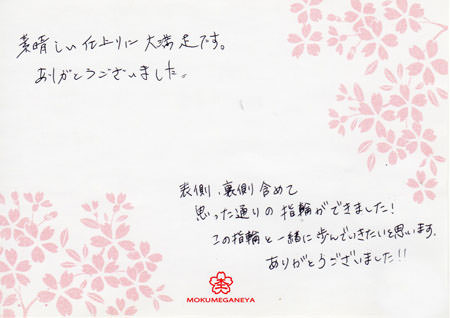 素晴しい仕上りに大満足です。
ありがとうございました。
表側、裏側含めて
思った通りの指輪ができました!
この指輪と一緒に歩んでいきたいと思います.
ありがとうございました!!
MOKUMEGANEYA